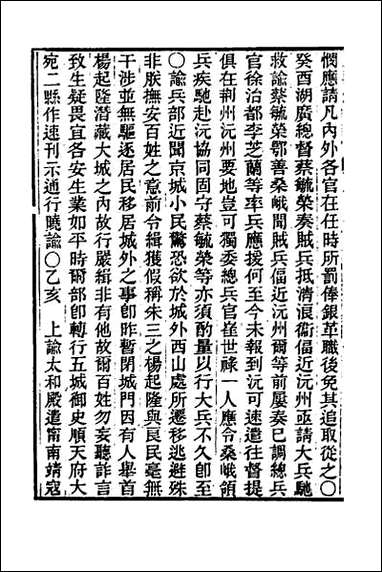 憫應請凡內外各官在任時所罰俸銀革職後免其追取從之〇
癸酉湖廣總督蔡毓榮奏賊兵抵清浪衞偪近沅州亟請大兵馳
救諭蔡毓榮鄂善桑峨聞賊兵偪近沅州爾等前屢奏已調總兵
官徐治都李芝蘭等率兵應援何至今未報到沅可速遣往督提
俱在荆州沅州要地豈可獨委總兵官崔世祿一人應令桑峨領
兵疾馳赴沅協同固守蔡毓榮等亦須酌量以行大兵不久卽至
〇諭兵部近聞京城小民驚恐欲於城外西山處所遷移逃避殊
非朕撫安百姓之意前令緝獲假稱朱三之楊起隆與良民毫無
干涉並無驅逐居民移居城外之事卽昨暫閉城門因有人舉首
楊起隆潛藏大城之內故行嚴緝非有他故爾百姓勿妄聽訛言
致生疑畏宜各安生業如平時爾部卽轉行五城御史順天府大
宛二縣作速刊示通行曉諭〇乙亥　上諭太和殿遣甯南靖寇